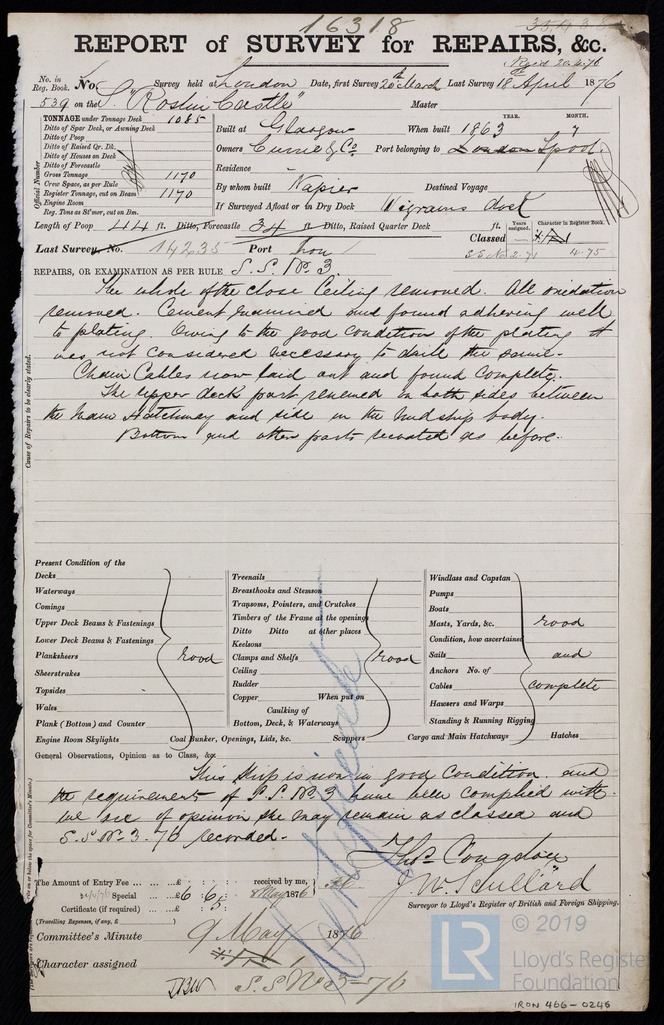 16318
REPORT of SURVEY for REPAIRS, &c.
Recd 20.4.76
No. in Reg. Book. No. Survey held at London Date, first Survey 20th March Last Survey 18th April 1876
539 on the S. "Roslin Castle" Master
TONNAGE under Tonnage Deck 1085
Ditto of Spar Deck, or Awning Deck
Ditto of Poop
Ditto of Raised Qr. Dk.
Ditto of Houses on Deck
Ditto of Forecastle
Gross Tonnage 1170
Crew Space, as per Rule
Register Tonnage, cut on Beam 1170
Engine Room
Reg. Tons as St'mer, cut on Bm.
Official Number
Built at Glasgow When built 1863 YEAR. MONTH. 7
Owners Currie & Co. Port belonging to London Lpool.
Residence
By whom built Napier Destined Voyage
If Surveyed Afloat or in Dry Dock Wigrams dock
Length of Poop 44 ft. Ditto, Forecastle 34 ft. Ditto, Raised Quarter Deck ft.
Classed Years assigned. Character in Register Book.
Last Survey, No. 14235 Port Lon
4.75
REPAIRS, OR EXAMINATION AS PER RULE S.S. No. 3.
The whole of the close Ceiling removed. All oxidation
removed. Cement examined and found adhering well
to plating. Owing to the good condition of the plating it
was not considered necessary to drill the same.
Chain Cables now laid out and found complete.
The upper deck part renewed on both sides between
the main Hatchway and side in the midship body.
Bottom and other parts recoated as before.
Cause of Repairs to be clearly stated.
Present Condition of the
Decks
Waterways
Comings
Upper Deck Beams & Fastenings
Lower Deck Beams & Fastenings
Planksheers
Sheerstrakes
Topsides
Wales
Plank (Bottom) and Counter
Engine Room Skylights
Good
Treenails
Breasthooks and Stemson
Transoms, Pointers, and Crutches
Timbers of the Frame at the openings
Ditto Ditto at other places
Keelsons
Clamps and Shelfs
Ceiling
Rudder
Copper When put on
Caulking of
Bottom, Deck, & Waterways
Coal Bunker, Openings, Lids, &c. Scuppers
Good
Windlass and Capstan
Pumps
Boats
Masts, Yards, &c.
Condition, how ascertained
Sails
Anchors No. of
Cables
Hawsers and Warps
Standing & Running Rigging
Cargo and Main Hatchways Hatches
Good
and
complete
General Observations, Opinion as to Class, &c.
This ship is now in good condition and
the requirements of S.S. No. 3 have been complied with
we are of opinion she may remain as classed and
S.S No. 3-76 recorded.
Thos. Congdon
J. W. Scullard
Surveyor to Lloyd's Register of British and Foreign Shipping.
The Amount of Entry Fee ... £ : : received by me,
Special ... £6 : 6 : 8 May 1876
Certificate (if required) ... £ : :
(Travelling Expenses, if any, £ )
Committee's Minute 9 May 1876
Character assigned
S.S No 3-76
© 2019
LR
Lloyd's Register
Foundation
IRON 466-0246